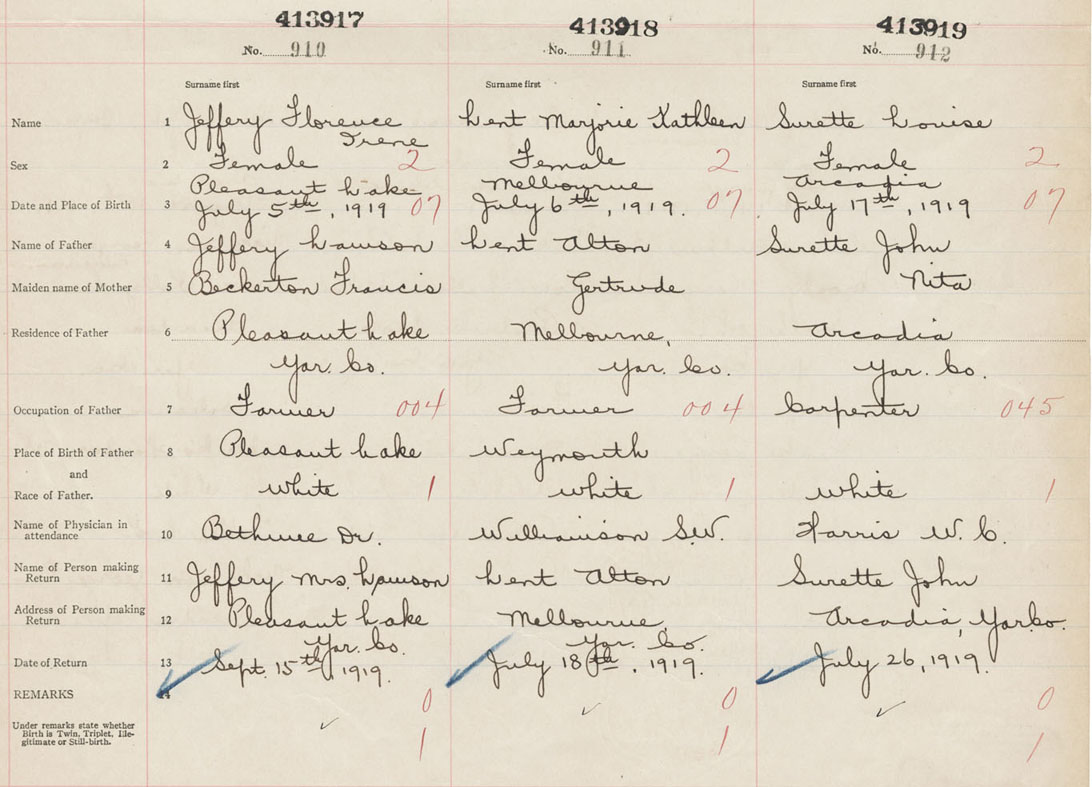 413917 413918 413919
No. 910 No. 911 No. 912
Surname first Surname first Surname first
Name 1 Jeffery Florence Irene Lent Marjorie Kathleen Surette Louise
Sex 2 Female 2 Female 2 Female 2
Pleasant Lake Melbourne Arcadia
Date and Place of Birth 3 July 5th, 1919 07 July 6th, 1919. 07. July 17th, 1919 07
Name of Father 4 Jeffery Lawson Lent Alton Surette John
Maiden name of Mother 5 Beckerton Francis Gertrude Nita
Residence of Father 6 Pleasant Lake Melbourne, Arcadia
Yar. Co. Yar. Co. Yar. Co.
Occupation of Father 7 Farmer 004 Farmer 004 Carpenter 045
Place of Birth of Father 8 Pleasant Lake Weymouth
and
Race of Father. 9 white 1 white 1 white 1
Name of Physician in attendance 10 Bethune Dr. Williamson S.W. Harris W. C.
Name of Person making Return 11 Jeffery Mrs. Lawson Lent Alton Surette John
Address of Person making Return 12 Pleasant Lake Melbourne, Arcadia, Yar.Co.
Yar. Co. Yar. Co.
Date of Return 13 Sept. 15th, 1919. July 18th, 1919. July 26, 1919.
REMARKS 14 0 0 0
Under remarks state whether
Birth is Twin, Triplet, Ille-
gitimate or Still-birth.
1 1 1